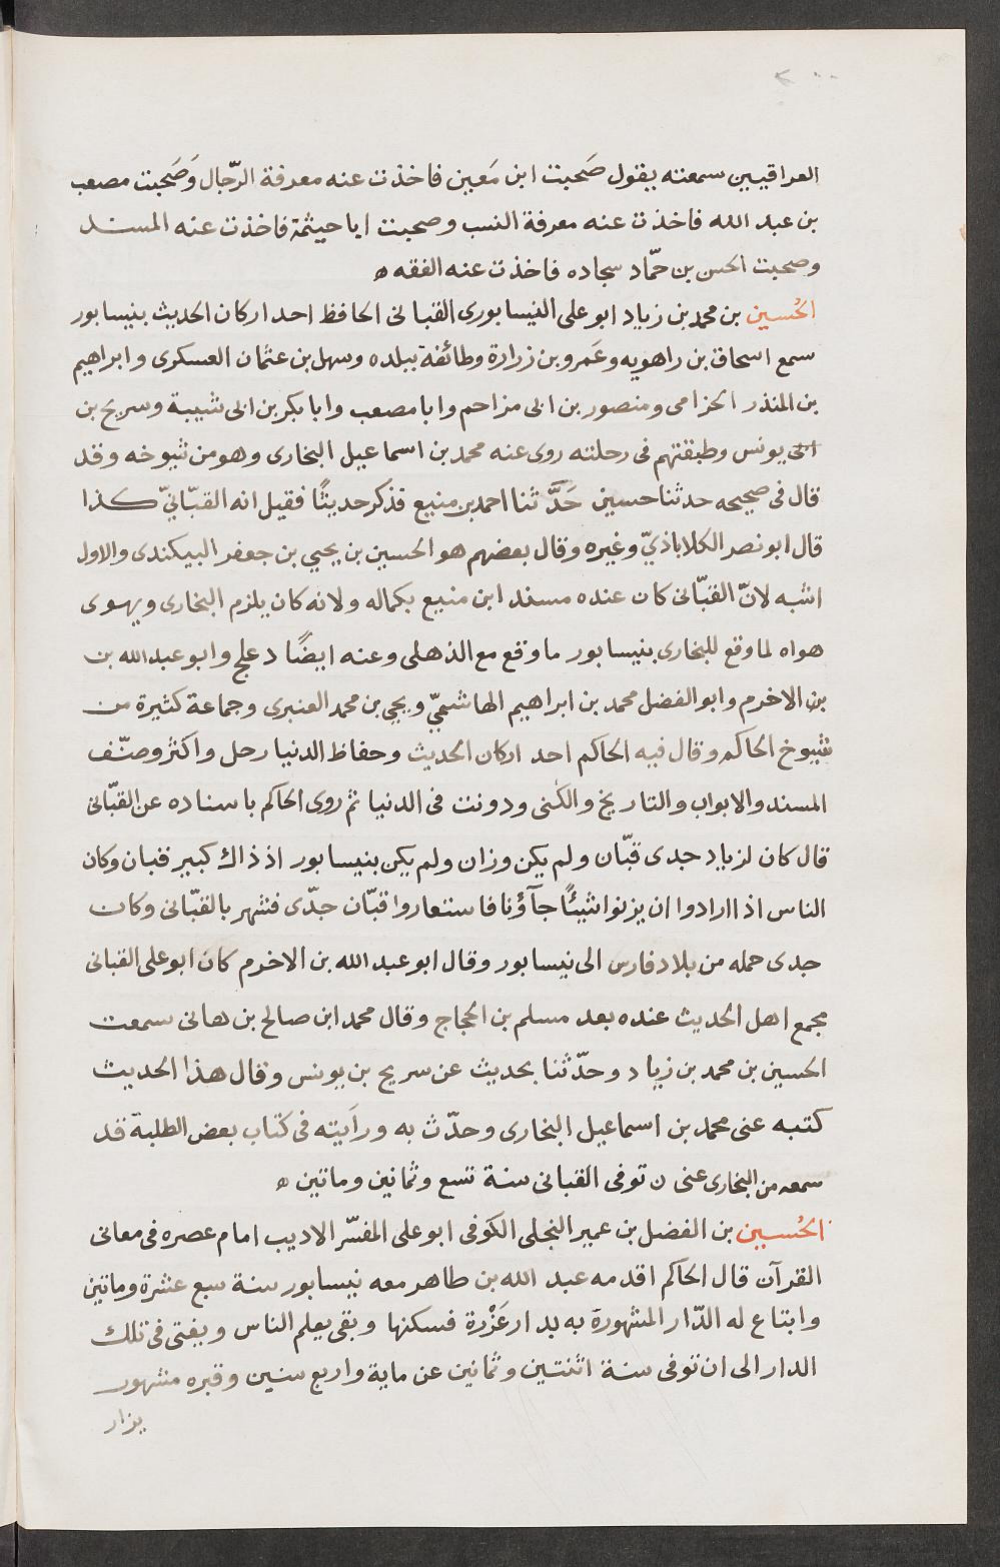 ٢٠٠
العراقيين سمعته يقول صَحبت ابن مَعين فاخذت عنه معرفة الرّجال وَصَحبت مصعب
بن عبد الله فاخذت عنه معرفة النسب وصحبت ابا خيثمة فاخذت عنه المسند
وصحبت الحسن بن حمّاد سجاده فاخذت عنه الفقه ه
الحُسين بن محمد بن زياد ابو على النيسابورى القبانى الحافظ احد اركان الحديث بنيسابور
سمع اسحاق بن راهويه وعَمرو بن زرارة وطائفة ببلده وسهل بن عثمان العسكرى وابراهيم
بن المنذر الحزامى ومنصور بن ابى مزاحم وابا مصعب وابا بكر بن ابى شيبة وسريج بن
ابى يونس وطبقتهم فى رحلته روى عنه محمد بن اسماعيل البخارى وهو من شيوخه وقد
قال فى صحيحه حدثنا حسين حَدَّثنا احمد بن منيع فذكر حديثًا فقيل انه القبّانيّ كذا
قال ابو نصر الكلاباذيّ وغيره وقال بعضهم هو الحسين بن يحيي بن جعفر البيكندى والاول
اشبه لانّ القبّانى كان عنده مسند ابن منيع بكماله ولانه كان يلزم البخارى ويهوى
هواه لما وقع للبخارى بنيسابور ما وقع مع الذهلى وعنه ايضًا دعلج وابو عبد الله بن
بن الاخرم وابو الفضل محمد بن ابراهيم الهاشميّ ويحيى بن محمد العنبرى وجماعة كثيرة من
شيوخ الحاكم وقال فيه الحاكم احد اركان الحديث وحفاظ الدنيا رحل واكثر وصنّف
المسند والابواب والتاريخ والكُنى ودونت فى الدنيا ثم روى الحاكم باسناده عن القبّانى
قال كان لزياد جدى قبّان ولم يكن وزان ولم يكن بنيسابور اذ ذاك كبير قبان وكان
الناس اذا ارادوا ان يزنوا شيئًا جآؤنا فاستعاروا قبّان جدّى فشهر بالقبّانى وكان
جدى حمله من بلاد فارس الى نيسابور وقال ابو عبد الله بن الاخرم كان ابو على القبانى
مجمع اهل الحديث عنده بعد مسلم بن الحجاج وقال محمد ابن صالح بن هانى سمعت
الحسين بن محمد بن زياد وحدّثنا بحديث عن سريج بن يونس وقال هذا الحديث
كتبه عنى محمد بن اسماعيل البخارى وحدّث به ورأيته فى كتاب بعض الطلبة قد
سمعه من البخارى عنى ن توفى القبانى سنة تسع وثمانين وماتين ه
الحُسين بن الفضل بن عمير البجلى الكوفى ابو على المفسّر الاديب امام عصره فى معانى
القرآن قال الحاكم اقدمه عبد الله بن طاهر معه نيسابور سنة سبع عشرة وماتين
وابتاع له الدّار المشهورة به بدار عَزْرة فسكنها وبقى يعلم الناس ويفتى فى تلك
الدار الى ان توفى سنة اثنتين وثمانين عن ماية واربع سنين وقبره مشهور
يزار